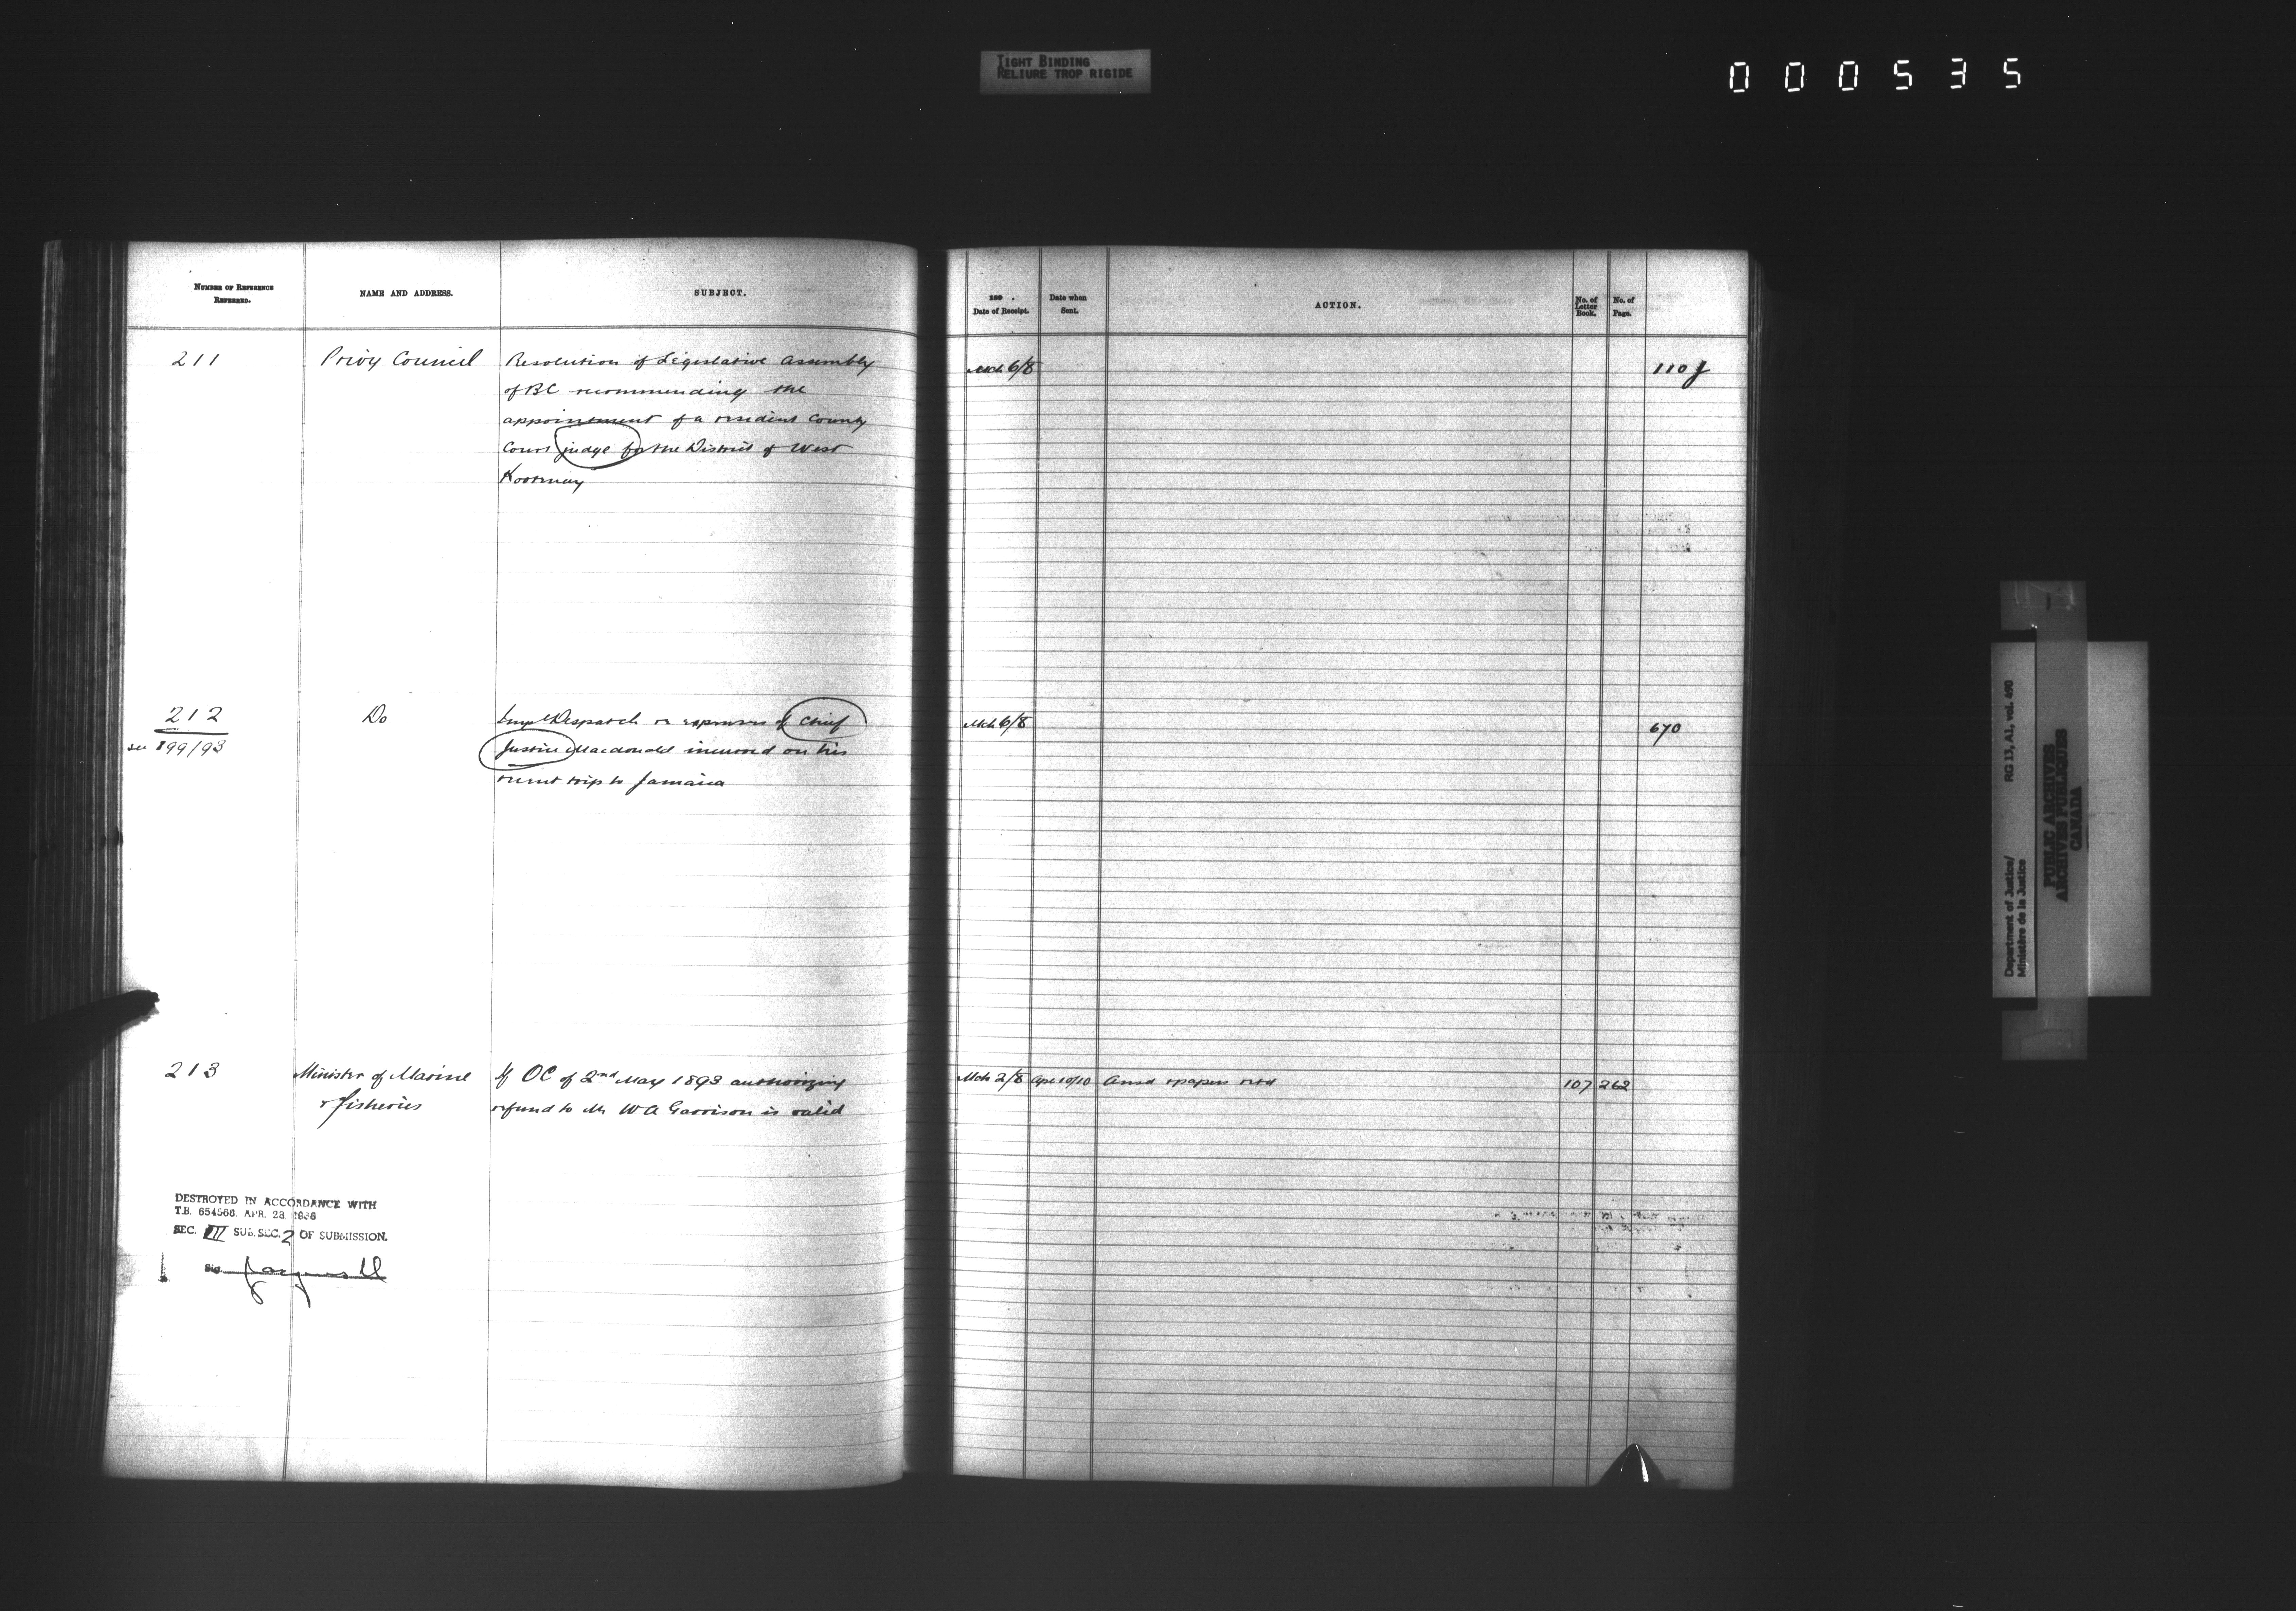 TIGHT BINDING
RELIURE TROP RIGIDE
000535
NUMBER OF REFERENCE REFERRED.
NAME AND ADDRESS.
SUBJECT.
189 .
Date of Receipt.
Date when Sent.
ACTION.
No. of Letter Book.
No. of Page.
211 Privy Council Resolution of Legislative Assembly Mch 6/8 110 J
of BC recommending the
appointment of a resident County
Court judge for the District of West
Kootenay
212 Do Impl Despatch re expenses of Chief Mch 6/8 670
see 899/93 Justice Macdonald incurred on his
recent trip to Jamaica
213 Minister of Marine If OC of 2nd May 1893 authorizing Mch 2/8 Apl 10/10 Ansd & papers retd 107 262
& Fisheries refund to Mr W A Garrison is valid
DESTROYED IN ACCORDANCE WITH
T.B. 654566. APR. 28. 1936
SEC. III SUB. SEC. 2 OF SUBMISSION.
Sig.
Department of Justice/ RG 13, A1, vol. 490
Ministère de la Justice
PUBLIC ARCHIVES
ARCHIVES PUBLIQUES
CANADA